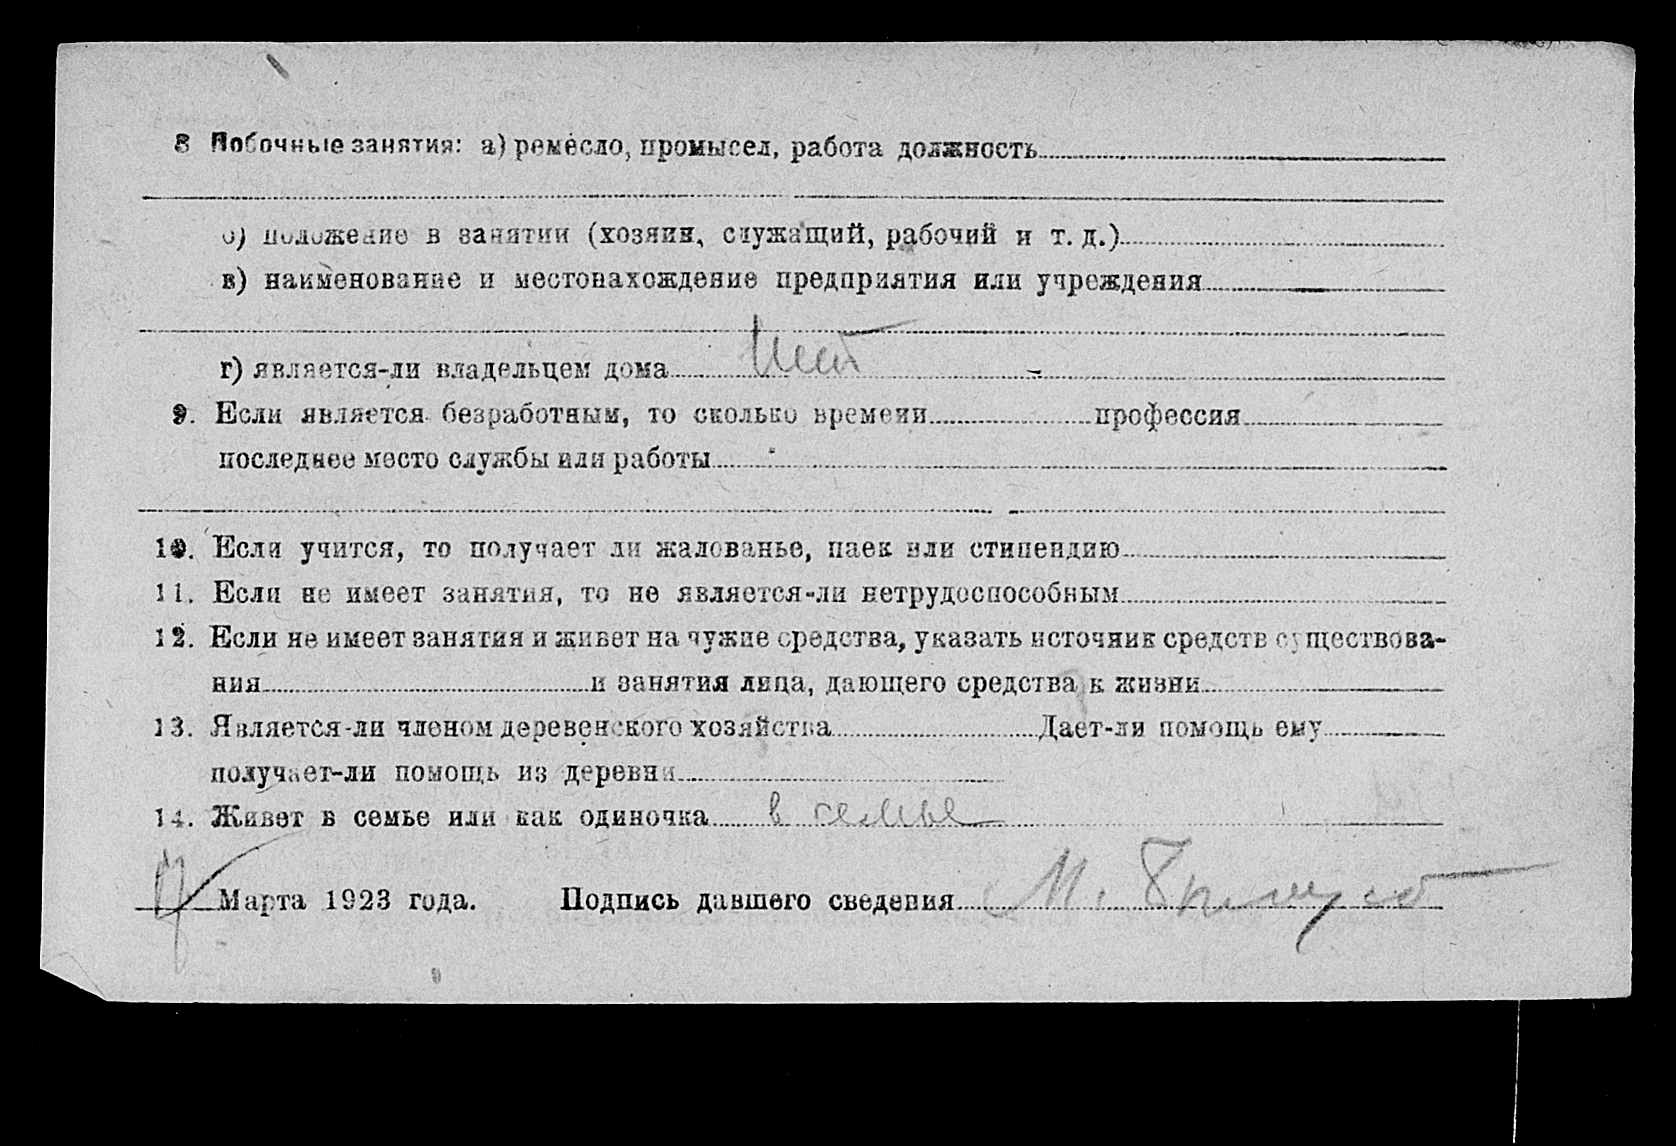 8 Побочные занятия: а) ремесло, промысел, работа должность
б) положение в занятии (хозяин, служащий, рабочий и т. д.)
в) наименование и местонахождение предприятия или учреждения
г) является-ли владельцем дома нет
9. Если является безработным, то сколько времени профессия
последнее место службы или работы
10. Если учится, то получает ли жалованье, паек или стипендию
11. Если не имеет занятия, то не является-ли нетрудоспособным
12. Если не имеет занятия и живет на чужие средства, указать источник средств существова-
ния и занятия лица, дающего средства к жизни
13. Является-ли членом деревенского хозяйства Дает-ли помощь ему
получает-ли помощь из деревни
14. Живет в семье или как одиночка в семье
Марта 1923 года. Подпись давшего сведения М.